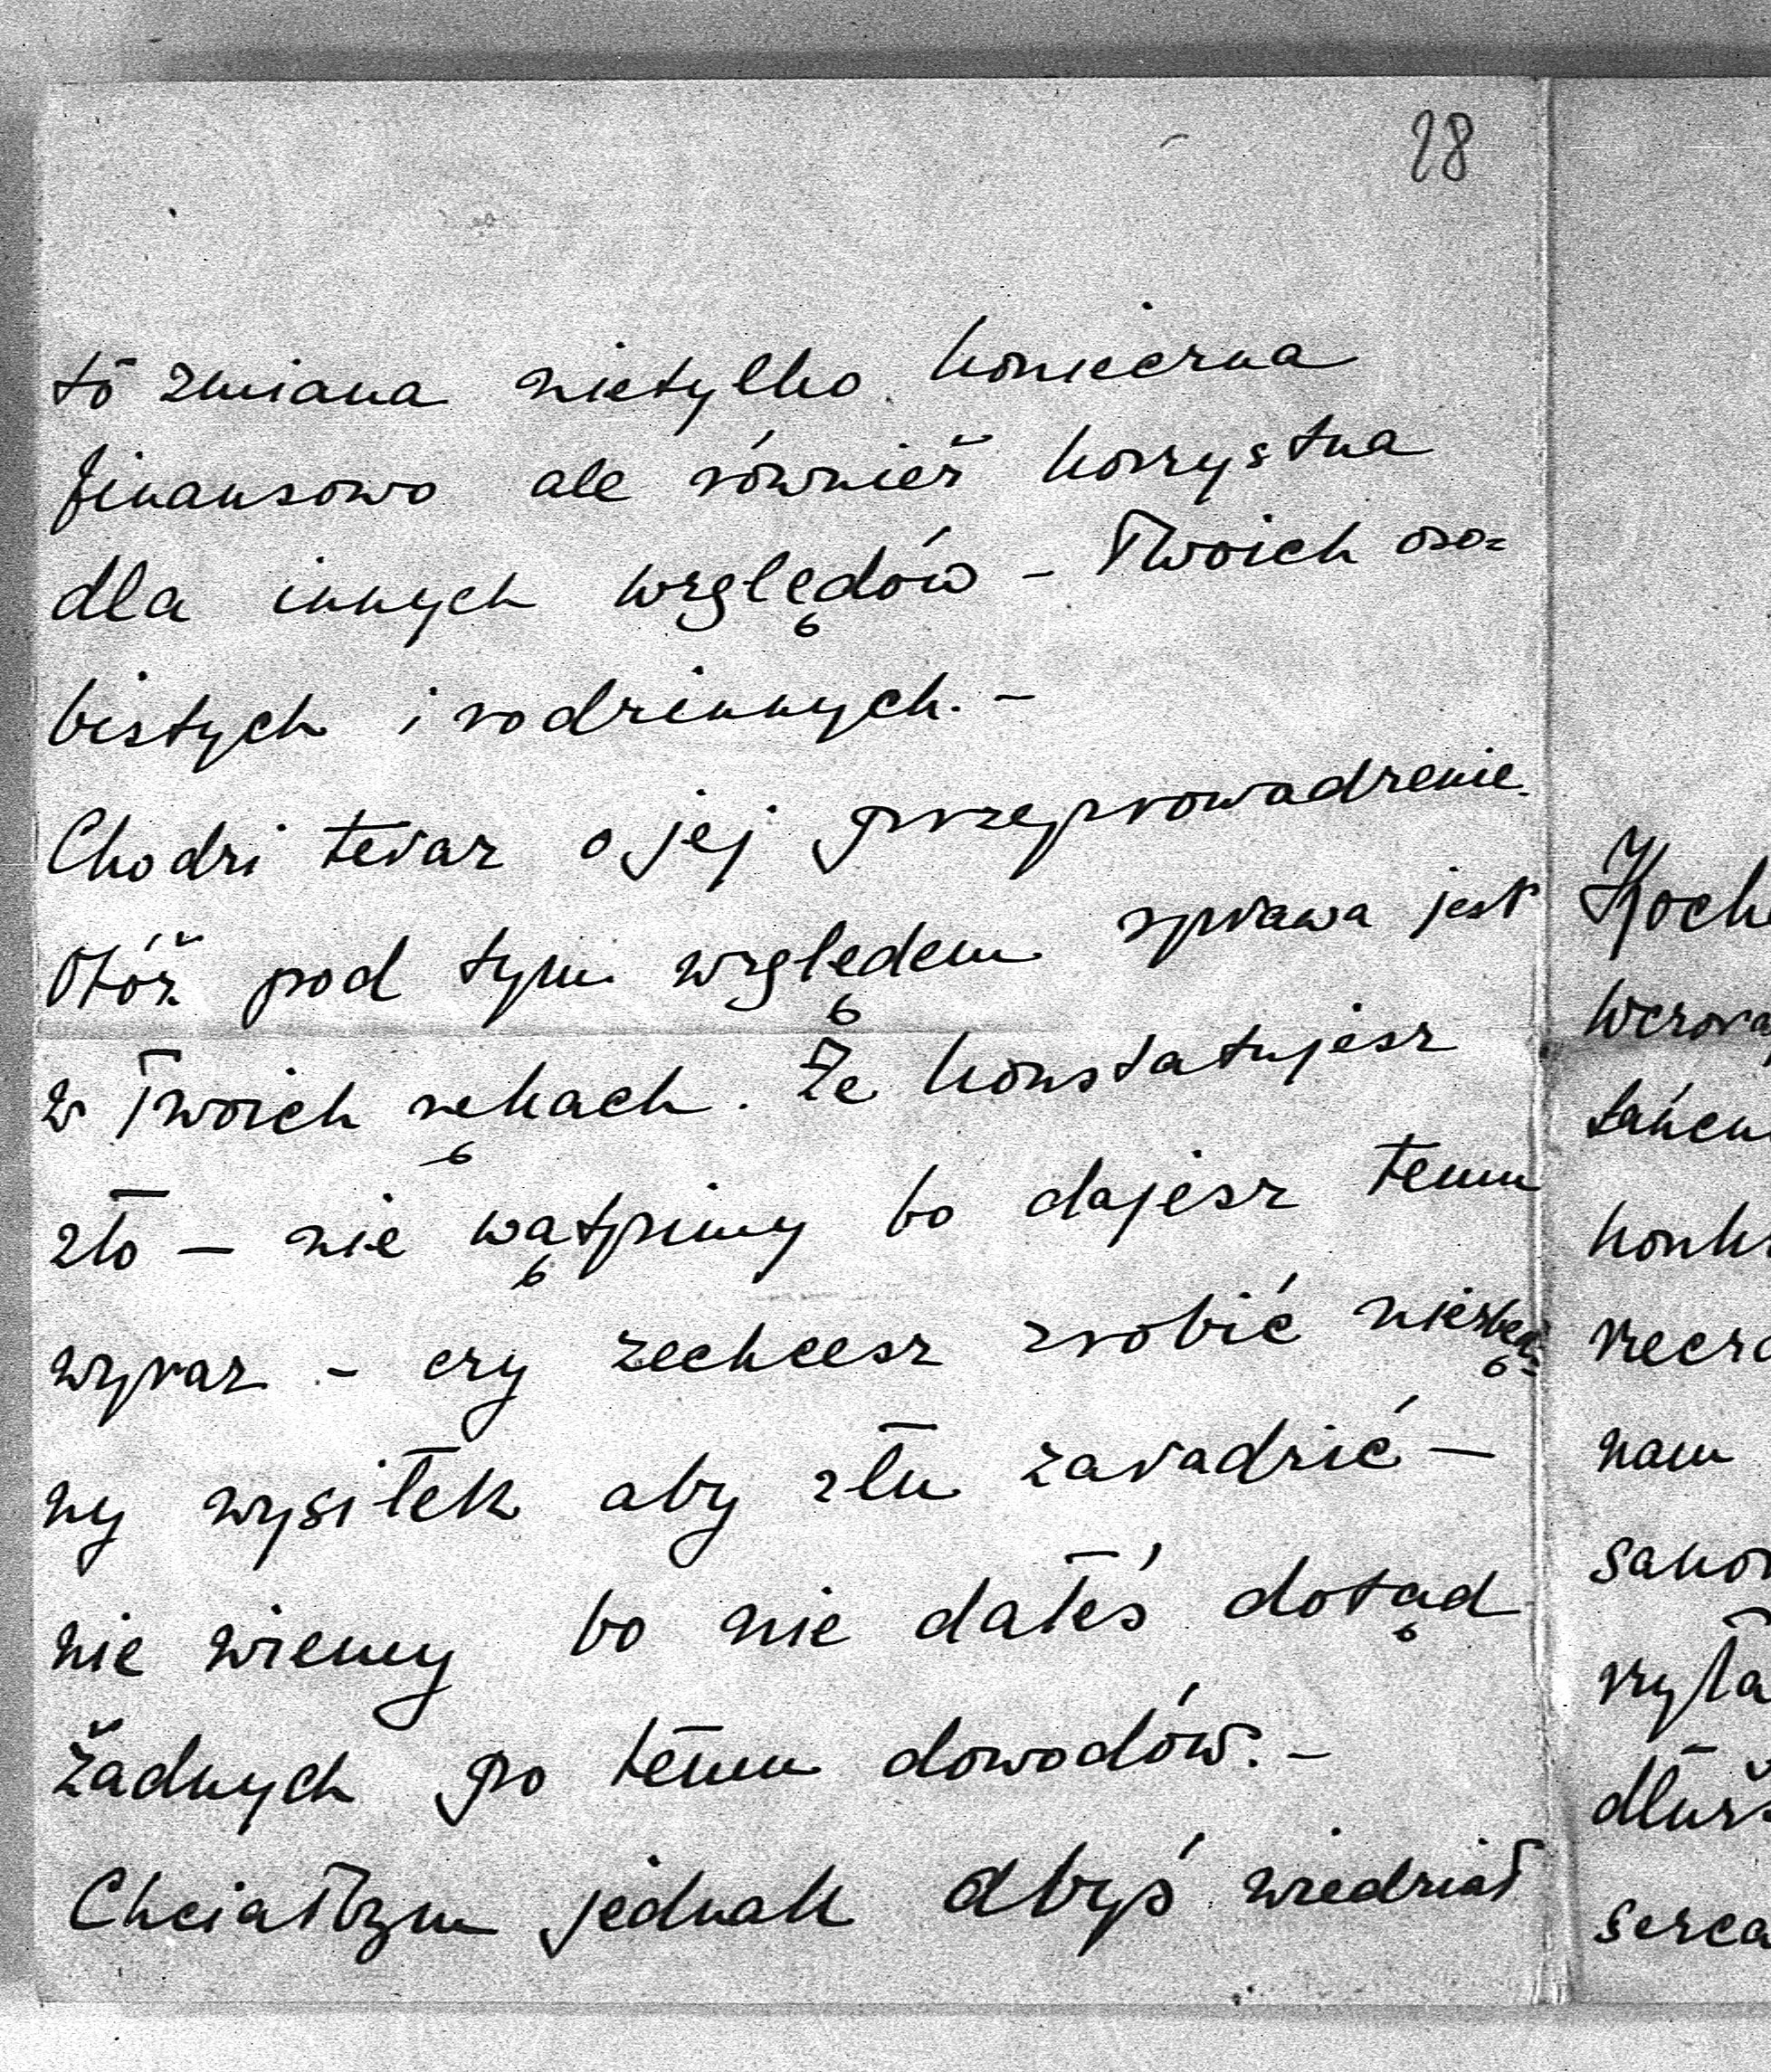 28
to zmiana nietylko konieczna
finansowo ale również korzystna
dla innych względów – Twoich oso=
bistych i rodzinnych. –
Chodzi teraz o jej przeprowadzenie.
Otóż pod tym względem sprawa jest
w Twoich rękach. Że konstatujesz
zło – nie wątpimy bo dajesz temu
wyraz – czy zechcesz zrobić niezbęd=
ny wysiłek aby złu zaradzić –
nie wiemy bo nie dałeś dotąd
żadnych po temu dowodów. –
Chciałbym jednak abyś wiedział
Koch
tańcu
nam
serca